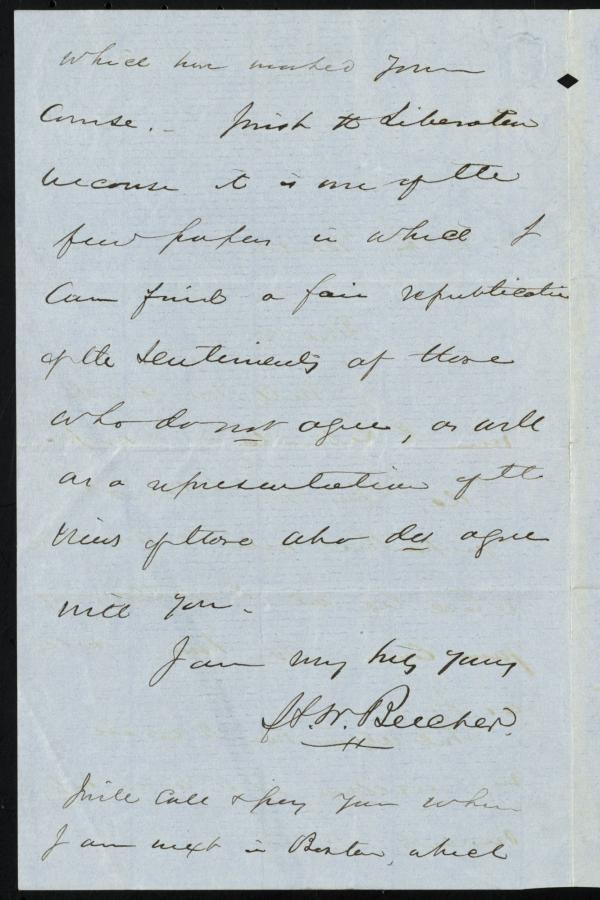 which have marked your
Course. - I wish the Liberator
because it is one of the
few papers in which I
Can find a fair republication
of the sentiments of those
who do not agree, as well
as a representation of the
views of those who do agree
with you -
I am very truly yours
H. W. Beecher.
I will call & pay you when
I am next in Boston, which